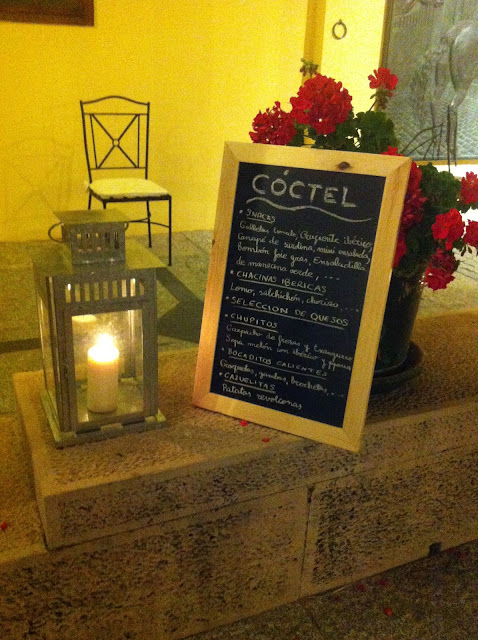 CÓCTEL
• SNACKS
Galletas tomate, Gazpacho ibérico,
Canapé de sardina, mini ensalada,
Bombón foie gras, Ensaladilla
de manzana verde, ...
• CHACINAS IBERICAS
Lomo, salchichón, chorizo, ...
• SELECCION DE QUESOS
• CHUPITOS
Gazpacho de fresas y
Sopa melón con ibérico y
• BOCADITOS CALIENTES
Croquetas, gambas, brochetas, ...
• CAZUELITAS
Patatas revolconas